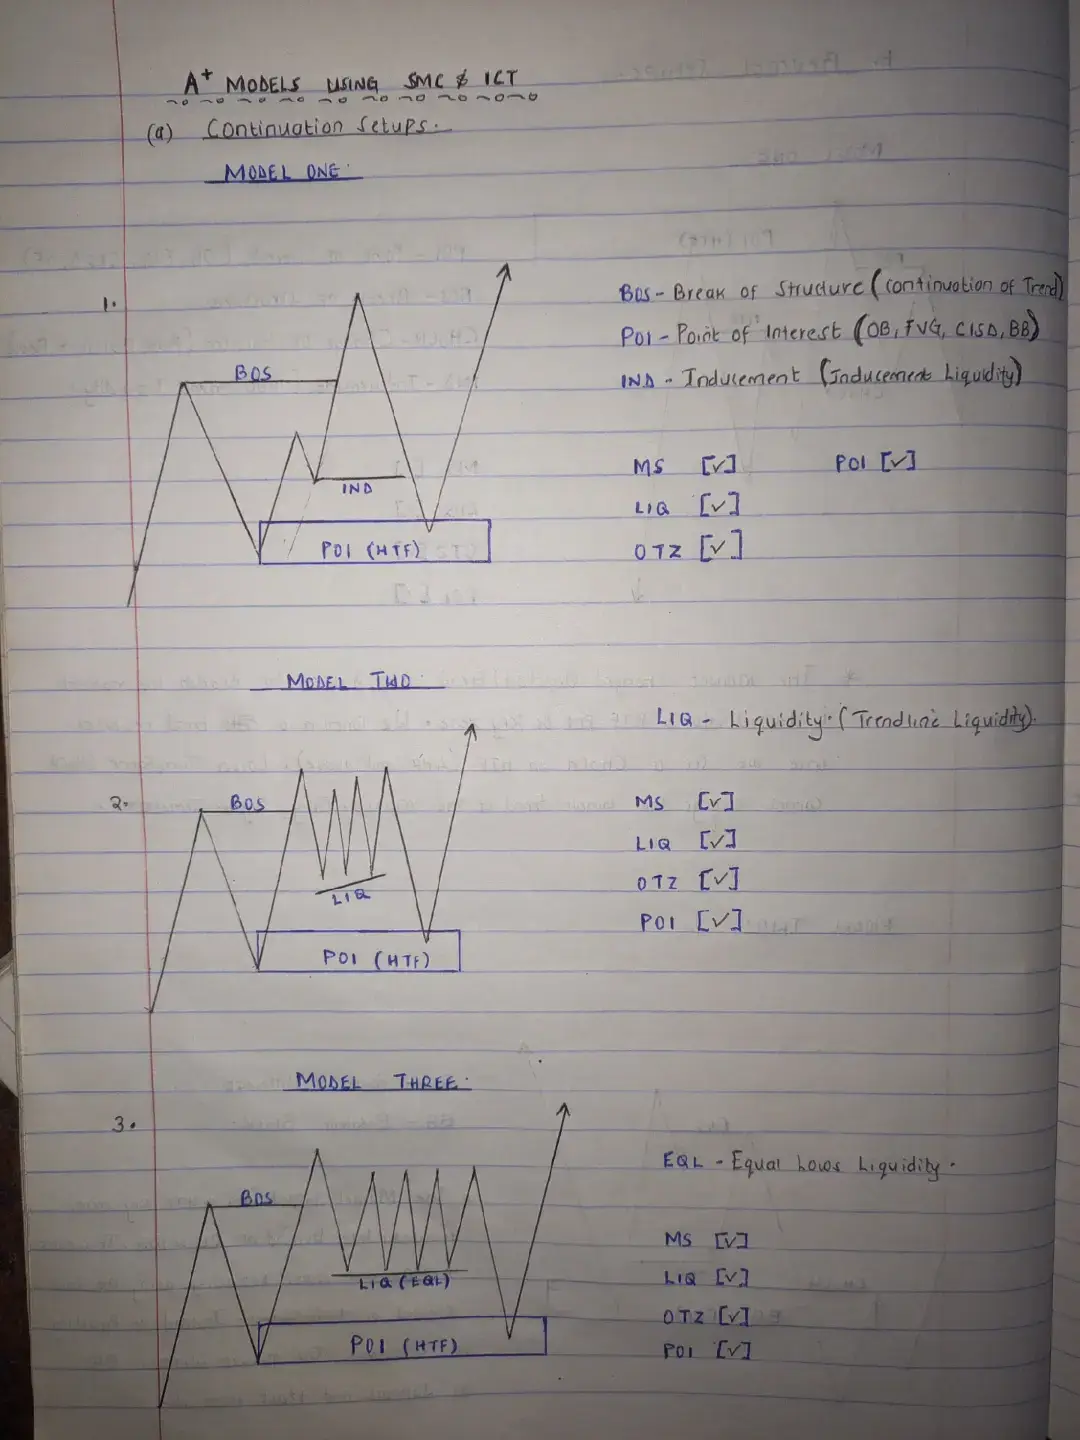 A+ MODELS USING SMC & ICT
(a) Continuation Setups.
MODEL ONE
1.
BOS
IND
POI (HTF)
BOS - Break of Structure (continuation of Trend)
POI - Point of Interest (OB, FVG, CISD, BB)
IND - Inducement (Inducement Liquidity)
MS [✓] POI [✓]
LIQ [✓]
OTZ [✓]
MODEL TWO
2.
BOS
LIQ
POI (HTF)
LIQ - Liquidity. (Trendline Liquidity).
MS [✓]
LIQ [✓]
OTZ [✓]
POI [✓]
MODEL THREE.
3.
BOS
LIQ (EQL)
POI (HTF)
EQL - Equal Lows Liquidity.
MS [✓]
LIQ [✓]
OTZ [✓]
POI [✓]